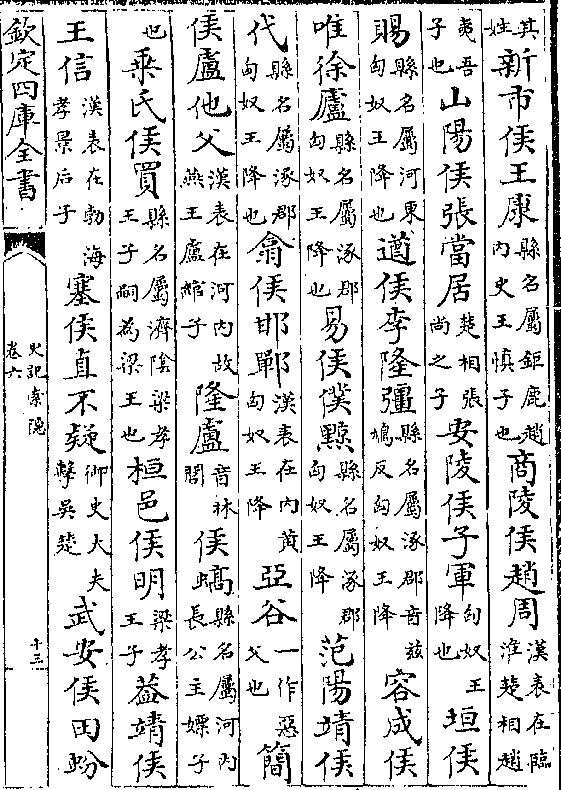 其姓新市侯王康縣名屬鉅鹿趙內史王慎子也商陵侯趙周漢表在臨淮楚相趙
夷吾子也山陽侯張當居楚相張尚之子安陵侯子軍匈奴王降也垣侯
賜縣名屬河東匈奴王降也遒侯李隆彊縣名屬涿郡音兹鳩反匈奴王降容成侯
唯徐盧縣名屬涿郡匈奴王降也易侯僕黥縣名屬涿郡匈奴王降范陽靖侯
代縣名屬涿郡匈奴王降也翕侯邯鄲漢表在内黃匈奴王降亞谷一作惡父也簡
侯盧他父漢表在河内故燕王盧綰子隆盧音林閭侯蟜縣名屬河内長公主嫖子
也乗氏侯買縣名屬濟隂梁孝王子嗣為梁王也桓邑侯明梁孝王子葢靖侯
王信漢表在勃海孝景后子塞侯直不疑御史大夫擊吳楚武安侯田蚡
欽定四庫全書
史記索隱
卷六
十三